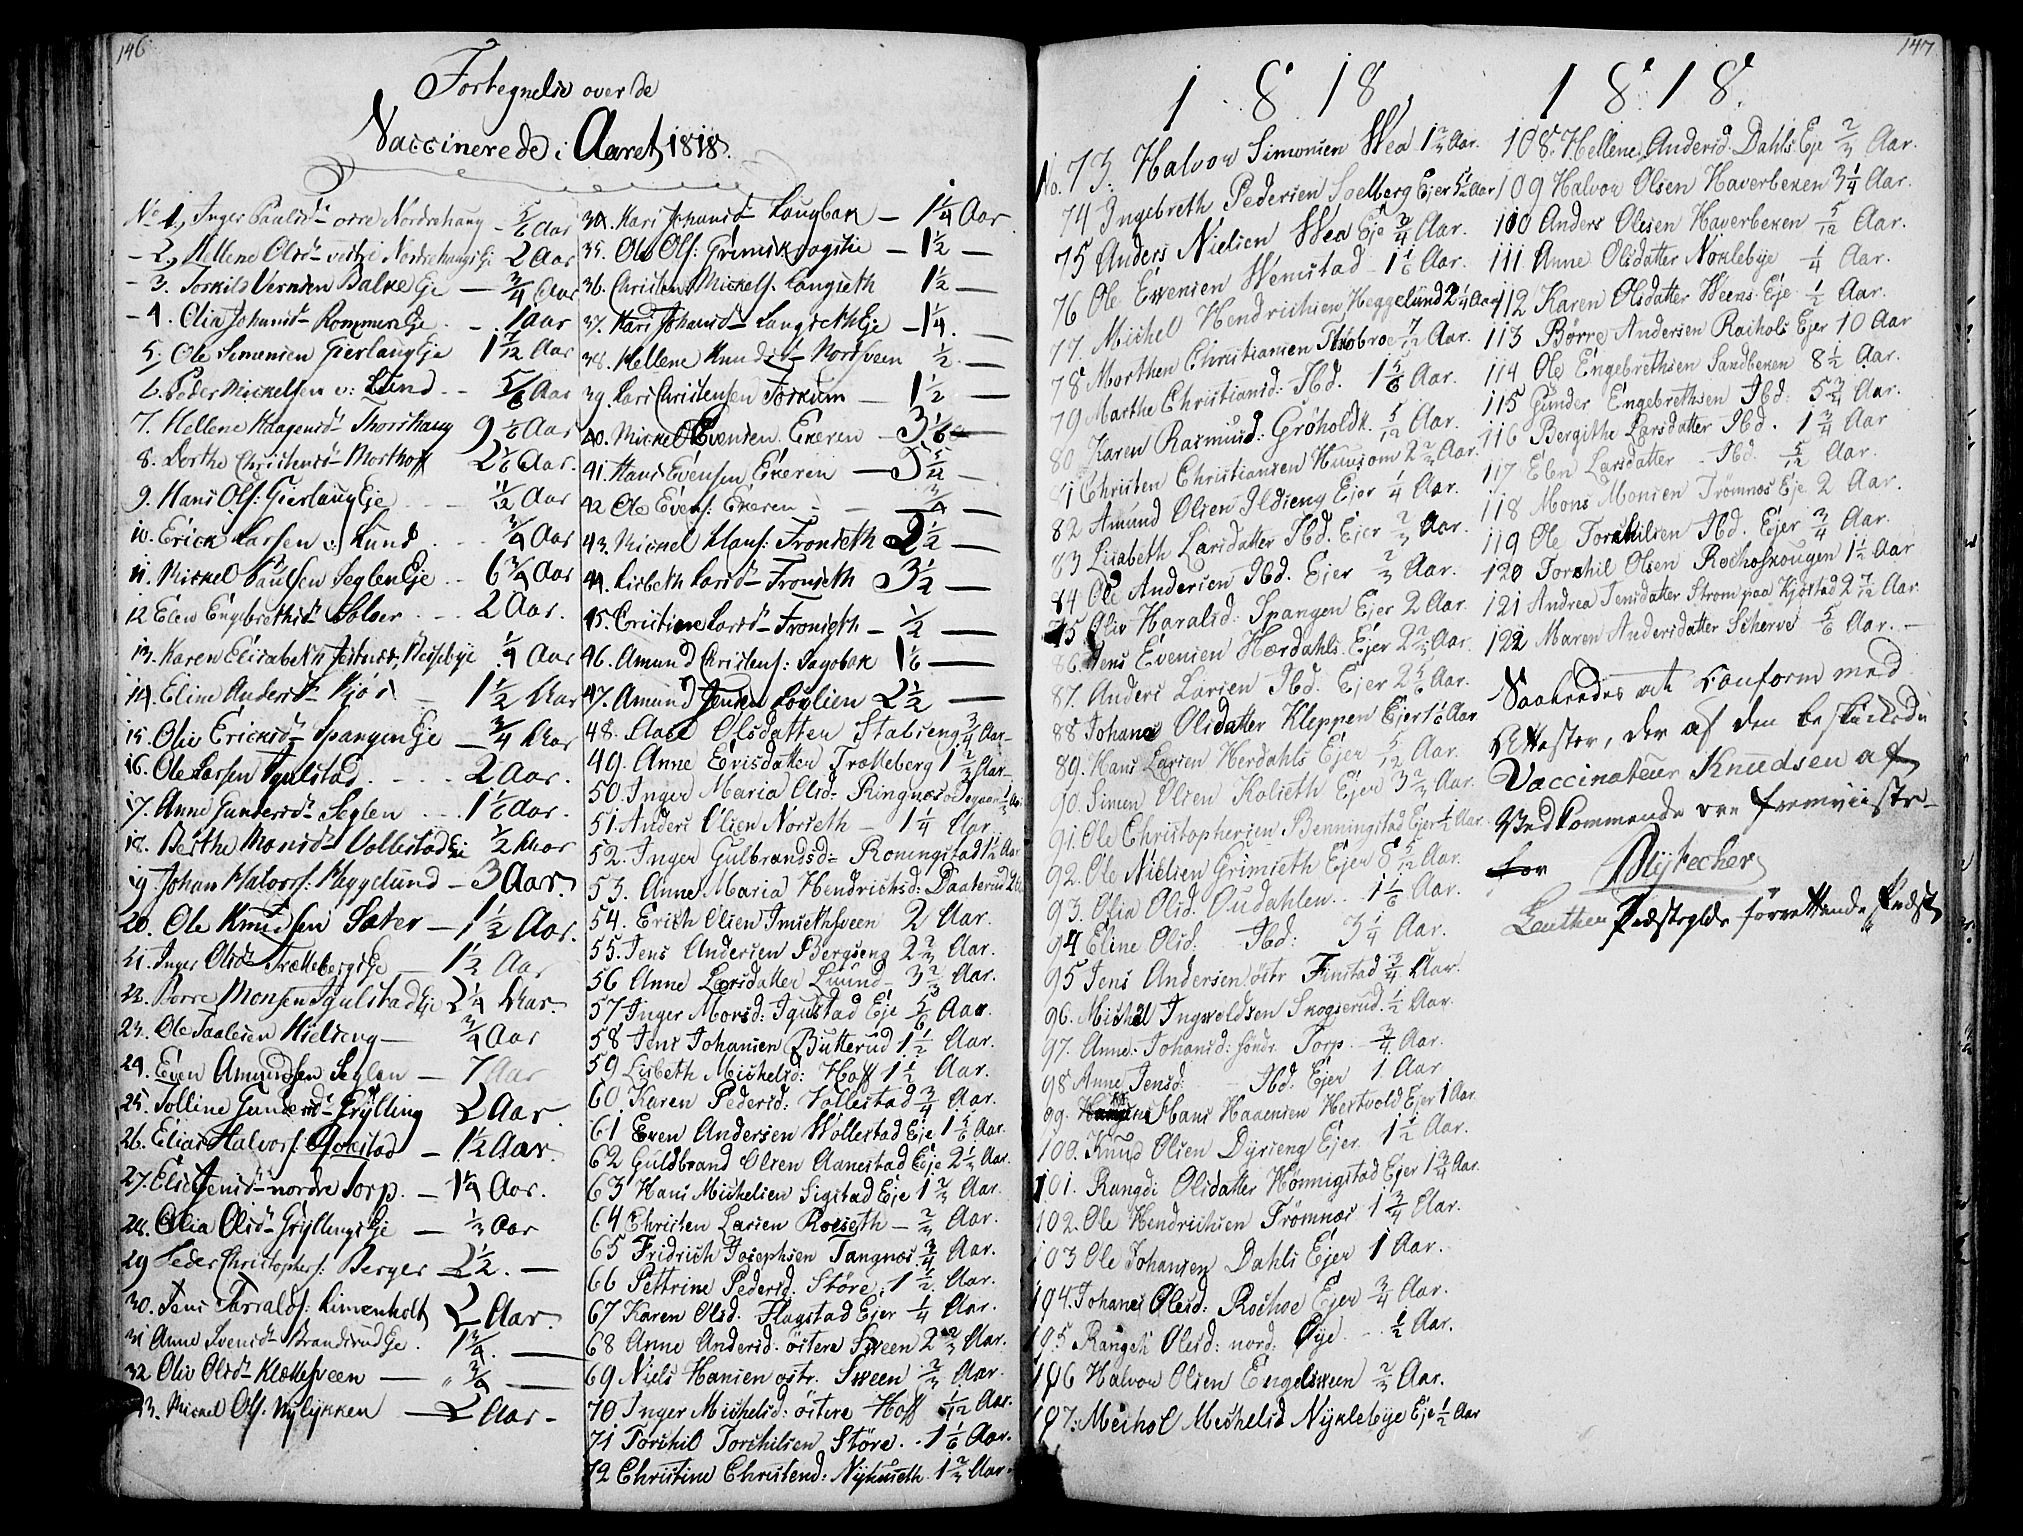 146
Fortegnelse over de
Vaccinerede i Aaret 1818.
No 1, Inger Paulsd. øvre Nordrehaug - 5/6 Aar
- 2, Hellene Olsd. vestre Nordrehaugs Eje 2 Aar
- 3. Torkild Balke Eje - 3/4 Aar
- 4. Olia Johansd. Rommen Eje - 1 Aar
5. Ole Simensen Gierlaug Eje 1 1/12 Aar
6. Peder Mickelsen v: Lund - 5/6 Aar
7. Hellene Haagensd. Thorshaug 9 1/6 Aar
8. Dorthe Christensd. Morthoff 2 1/6 Aar.
9. Hans Ols: Gierlaug Eje 11/12 Aar
10. Erick Larsen v: Lund 3/4 Aar
11. Mickel Paulsen Seglen Eje 6 3/4 Aar
12 Elen Engebrethsd. Solver 2 Aar.
13. Karen Elisabeth 1/4 Aar
14. Eline Andersd. Kjøs - 1 1/2 Aar
15. Oliv Ericksd. Spangen Eje - 3/4 Aar
16. Ole Larsen Igulstad - 2 Aar.
17. Anne Gundersd. Seglen 1 1/6 Aar.
18. Berthe Monsd. Vollestad Eje 1/2 Aar
19. Johan Halvors: Heggelund - 3 Aar
20. Ole Knudsen Sater - 1 1/2 Aar.
21. Inger Olsd. Trættebergs Eje - 1 1/2 Aar
22. Børre Monsen Igulstad Eje 2 1/4 Aar.
23. Ole Paalesen Kielseng - 3/4 Aar
24. Even Amundsen Seglen - 7 Aar
25. Tolline Gundersd. Grylling 2 Aar
26. Elias Halvors: - 1 1/2 Aar.
27. Elie Jensd. nordre Torp. - 1 1/4 Aar.
28. Olia Olsd. Gryllings Eje - 1/3 Aar
29 Peder Christophers: Berger 2 1/2. -
30. Jens Haralds: Limenholt 2 Aar.
31 Anne Svensd. Brandsrud Eje. 1 3/4. -
32 Oliv Olsd. Klættesveen - " 3/4 -
33. Mickel Ols: Nylykken - 2 Aar -
34. Kari Johansd. Haugbak - 1 1/4 Aar
35. Ole Ols: Grimskrogstie - 1 1/2 -
36. Christen Mickels: Langseth 1 1/2 -
37. Kari Johansd. Langseth Eje - 1 1/4. -
38. Hellene Knudsd. Nordsveen 1/2 -
39. Lars Christensen Torkum - 1 1/2 -
40. Mickel Evensen Ekeren - 3 1/6 -
41. Hans Evensen Ekeren -
42 Ole Evens: Ekeren - 3/4 -
43. Mickel Hans: Fronseth 2 1/2 -
44. Lisbeth Larsd. Fronseth 3 1/2 -
45. Cristine Larsd. Fronseth - 1/2 -
46. Amund Christens: Sagbak 1 1/6 -
47. Amund Jensen Løvlien 2 1/2 -
48. Aase Olsdatter Stabseng 3/4 Aar -
49. Anne Ericsdatter Trætteberg 1 2/3 Aar -
50. Inger Maria Olsd. Ringnæs
51. Anders Olsen Norseth - 1 1/4 Aar
52. Inger Gulbrandsd. Roningstad 1 1/2 Aar
53. Anne Maria Hendrichsd: Daaterud
54. Erich Olsen Imsethsveen 2 Aar.
55. Jens Andersen Bergseng 2 2/3 Aar.
56 Anne Larsdatter Luund - 3 2/3 Aar.
57 Inger Monsd: Igulstad Eje 5/6 Aar
58 Jens Johansen Butterud 1 1/2 Aar.
59 Lisbeth Michelsd: Hoff 1 1/2 Aar.
60 Karen Pedersd: Vollestad 3/4 Aar.
61 Even Andersen Wollestad Eje 1 5/6 Aar.
62 Guldbrand Olsen Aanestad Eje 2 1/3 Aar.
63 Hans Michelsen Sigstad Eje 1 2/3 Aar.
64 Christen Larsen Roeseth - 2/3 Aar.
65 Fridrich Josephsen Tangnæs 3/4 Aar.
66 Pettrine Pedersd. Støre. 1 1/2 Aar.
67 Karen Olsd. Flagstad Ejer 1/4 Aar.
68 Anne Andersd. östere Sween 2 2/3 Aar.
69 Niels Hansen östr. Sween 2/3 Aar.
70 Inger Michelsd: östere Hoff 1/12 Aar.
71 Torchil Torchilsen Störe. - 1 1/6 Aar.
72 Christine Christend: Nyhuseth. 1 2/3 Aar.
147
1818
No. 73. Halvor Simonsen Wea 1 2/3 Aar.
74 Ingebreth Pedersen Soelberg Ejer 5 1/2 Aar
75 Anders Nielsen Wea Eje 3/4 Aar.
76 Ole Ewensen Wemstad - 1 1/6 Aar.
77. Michel Hendrichsen Heggelund 2 1/4 Aar
78 Morthen Christiansen 7/12 Aar.
79 Marthe Christiansd: Ibd. 1 5/6 Aar.
80 Karen Rasmusd: Gröholdt. 5/12 Aar.
81 Christen Christiansen Huusom 2 2/3 Aar.
82 Amund Olsen Ildseng Ejer 1/4 Aar.
83 Lisabeth Larsdatter Ibd. Ejer 2/3 Aar.
84 Ole Andersen Ibd. Ejer 2/3 Aar.
85 Oliv Haralsd: Spangen Ejer 2 Aar.
86 Jens Evensen Hærdahls Ejer 2 2/3 Aar.
87. Anders Larsen Ibd. Ejer 2 5/6 Aar.
88 Johana Olsdatter Kleppen Ejer 1 1/6 Aar
89. Hans Larsen Herdahls Ejer 5/12 Aar.
90. Simen Olsen Kolseth Ejer 3 2/3 Aar.
91. Ole Christophersen Benningstad Ejer 1/2 Aar.
92. Ole Nielsen Grimseth Ejer 8 5/12 Aar.
93. Olia Olsd. Oudahlen. 1 1/6 Aar.
94 Eline Olsd: Ibd: 3 1/4 Aar.
95 Jens Andersen östr Finstad 3/4 Aar.
96. Michel Ingwoldsen Skogserud. 1/2 Aar.
97. Anne Johansd: söndr Torp. 3/4 Aar.
98 Anne Jensd: Ibd: Ejer 1 Aar
99. Hans Haaensen Hestvold Ejer 1 Aar
100. Knud Olsen Dyrseng Ejer 1 1/2 Aar.
101. Rangdi Olsdatter Hönnigstad Ejer 1 3/4 Aar.
102. Ole Hendrichsen Trömnæs 1 3/4 Aar.
103 Ole Johansen Dahls Ejer 1 Aar.
104. Johanes Olesd: Rochoe Ejer 3/4 Aar.
105. Rangdi Olesd: nord: Øye. - 1/2 Aar.
106 Halvor Olsen Engelsween 2/3 Aar.
107. Meihol Mechelsd Nyklebye Eje 1/2 Aar
1818.
108. Hellene Andersd. Dahls Eje 2/3 Aar.
109 Halvor Olsen Haverbeken 3 1/4 Aar.
110 Anders Olesen Haverbeken 5/12 Aar.
111 Anne Olsdatter Nøklebye 1/4 Aar.
112 Karen Olsdatter Weens Eje 1/2 Aar.
113 Børre Andersen Raihols Ejer 10 Aar
114 Ole Engebrethsen Sandbeken 8 1/2 Aar.
115 Gunder Engebrethsen Ibd: 5 3/4 Aar.
116 Bergithe Larsdatter Ibd. 1 3/4 Aar
117 Elen Larsdatter - Ibd. 5/12 Aar.
118 Mons Monsen Trömnæs Eje 2 Aar.
119 Ole Torchilsen Ibd. Ejer 3/4 Aar.
120 Torchil Olsen Rochoskougen 1 1/2 Aar
121 Andrea Jensdatter Strom paa Kjøstad 2 7/12 Aar.
122 Maren Andersdatter Scherve 5/6 Aar. -
Saaledes at conform med
Attester, der af den beskikkede
Vaccinateur Knudsen af
Vedkommende ere fremviiste
for Blytecher
Leuthen Præstegield forrettende Præst